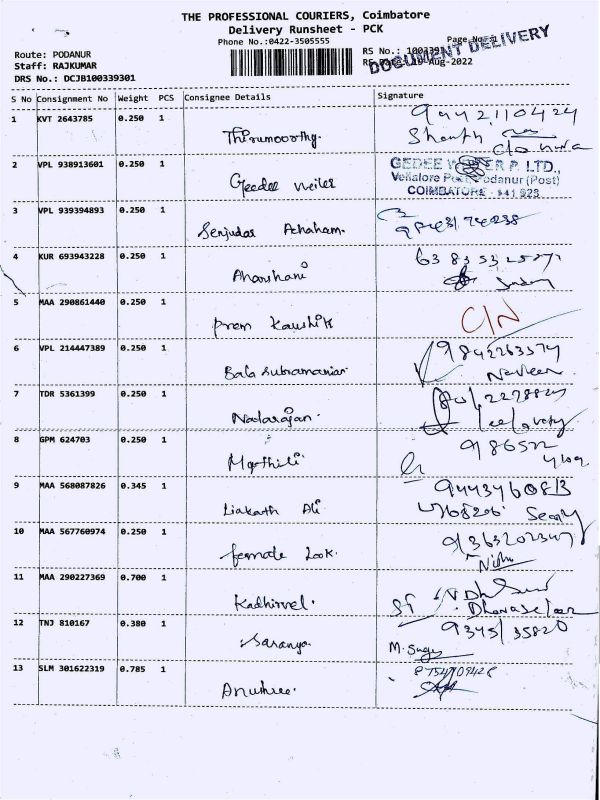 THE PROFESSIONAL COURIERS, Coimbatore
Delivery Runsheet - PCK
Phone No.:0422-3505555
Page No.:1
DOCUMENT DELIVERY
Route: PODANUR
RS No.: 1003391
Staff: RAJKUMAR
RS Date: 19-Aug-2022
DRS No.: DCJB100339301
S No Consignment No Weight PCS Consignee Details Signature
1 KVT 2643785 0.250 1 Thirumoorthy. 9442110424
Shanth
2 VPL 938913601 0.250 1 Geedee weiler
GEDEE P. LTD.,
Vellalore Podanur (Post)
COIMBATORE - 641 023
3 VPL 939394893 0.250 1 Senjudas
4 KUR 693943228 0.250 1
5 MAA 290861440 0.250 1 Prem Kaushik C/N
6 VPL 214447389 0.250 1 Bala Subramanian 9842263574
Naveen
7 TDR 5361399 0.250 1 Natarajan.
8 GPM 624703 0.250 1 Mythili
9 MAA 568087826 0.345 1 Liakath Ali
10 MAA 567760974 0.250 1 female Look. 9363202347
Nishu
11 MAA 290227369 0.700 1 Kadhirvel.
12 TNJ 810167 0.380 1 Saranya. 9345135820
M. Sugu
13 SLM 301622319 0.785 1 8754109428